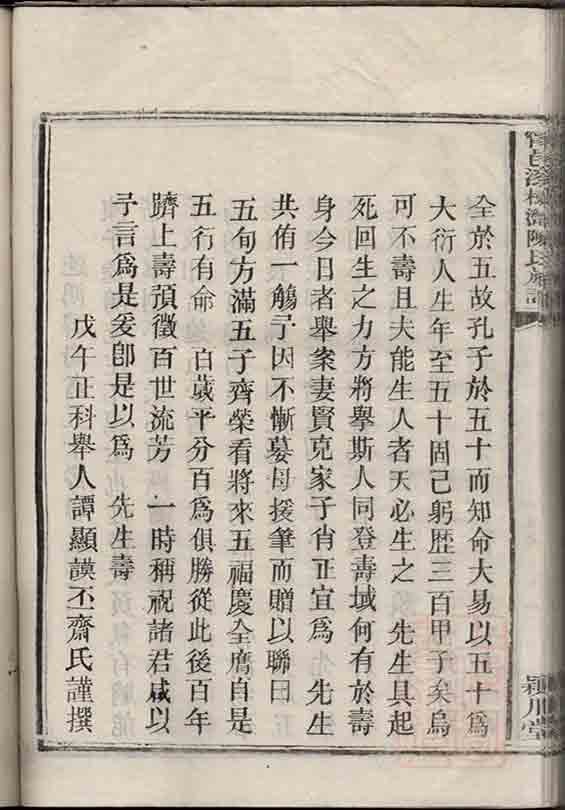 全於五故孔子於五十而知命大易以五十爲
大衍人生年至五十固已躬歷三百甲子矣烏
可不壽且夫能生人者天必生之　先生具起
死回生之力方將擧斯人同登壽域何有於壽
身今日者舉案妻賢克家子肖正宜爲　先生
共侑一觴予因不慚蟇母援筆而贈以聯曰
五旬方滿五子齊榮看將來五福慶全膺自是
五行有命　百歲平分百爲俱勝從此後百年
躋上壽預徵百世流芳一時稱祝諸君咸以
予言爲是爰卽是以爲　先生壽
戊午正科舉人譚顯謨丕齋氏謹撰
陳氏族
潁川堂